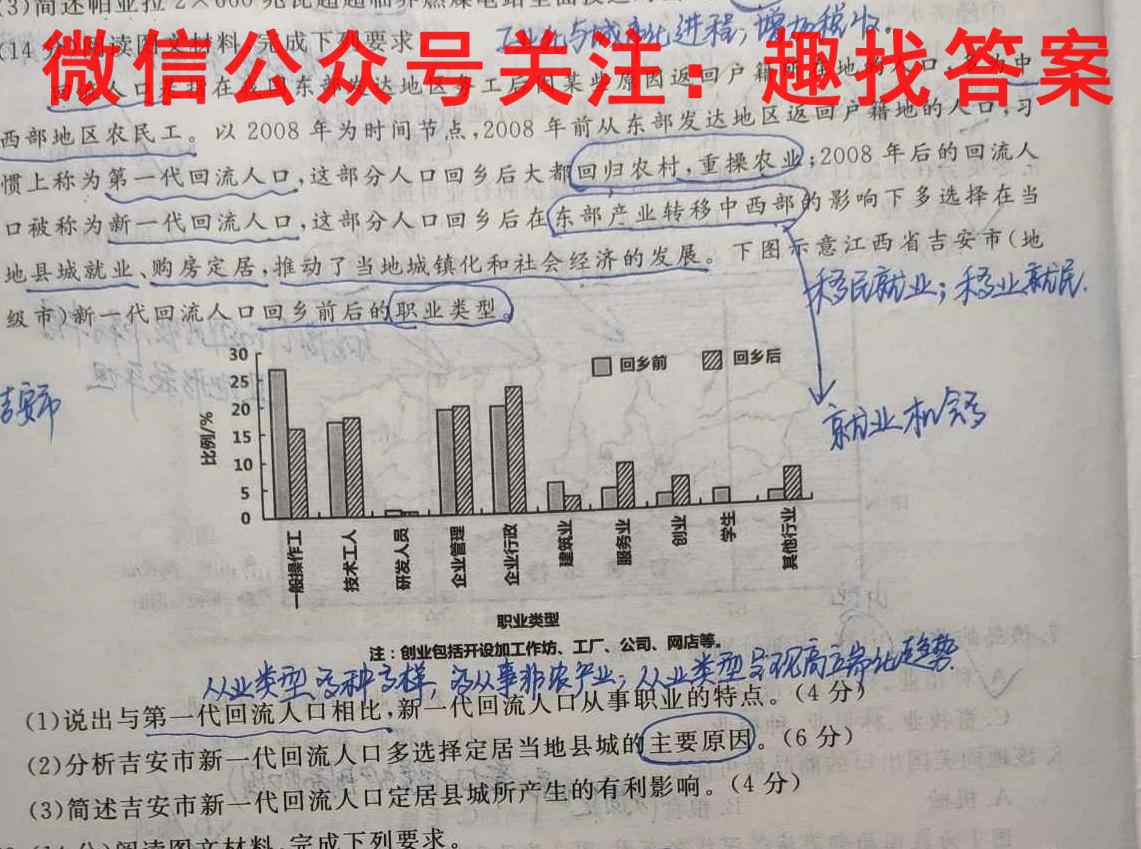 (3)简述帕亚拉2×660兆瓦超超临界燃煤电站
工业化与城市化进程，增加税收.
(14分)阅读图文材料,完成下列要求
微信公众号关注：趣找答案
西部地区农民工。以2008年为时间节点,2008年前从东部发达地区返回户籍地的人口,习
惯上称为第一代回流人口,这部分人口回乡后大都回归农村,重操农业;2008年后的回流人
口被称为新一代回流人口,这部分人口回乡后在东部产业转移中西部的影响下多选择在当
地县城就业、购房定居,推动了当地城镇化和社会经济的发展。下图示意江西省吉安市(地
级市)新一代回流人口回乡前后的职业类型。
移民就业；移业就民.
吉安市
就业机会多
比例/%
30
25
20
15
10
5
0
回乡前 回乡后
一般操作工 技术工人 研发人员 企业管理 企业行政 建筑业 服务业 创业 学生 其他行业
职业类型
注：创业包括开设加工作坊、工厂、公司、网店等。
从业类型多种多样，多从事非农产业；从业类型呈现高端化趋势
(1)说出与第一代回流人口相比,新一代回流人口从事职业的特点。(4分)
(2)分析吉安市新一代回流人口多选择定居当地县城的主要原因。(6分)
(3)简述吉安市新一代回流人口定居县城所产生的有利影响。(4分)
(14分)阅读图文材料,完成下列要求。